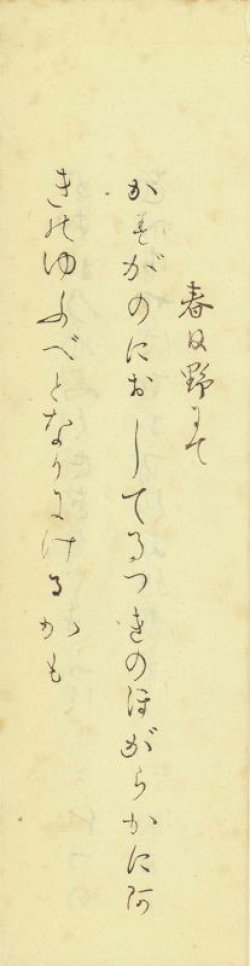 春日野にて
かすがのにおしてるつきのほがらかに阿
きのゆふべとなりにけるかも